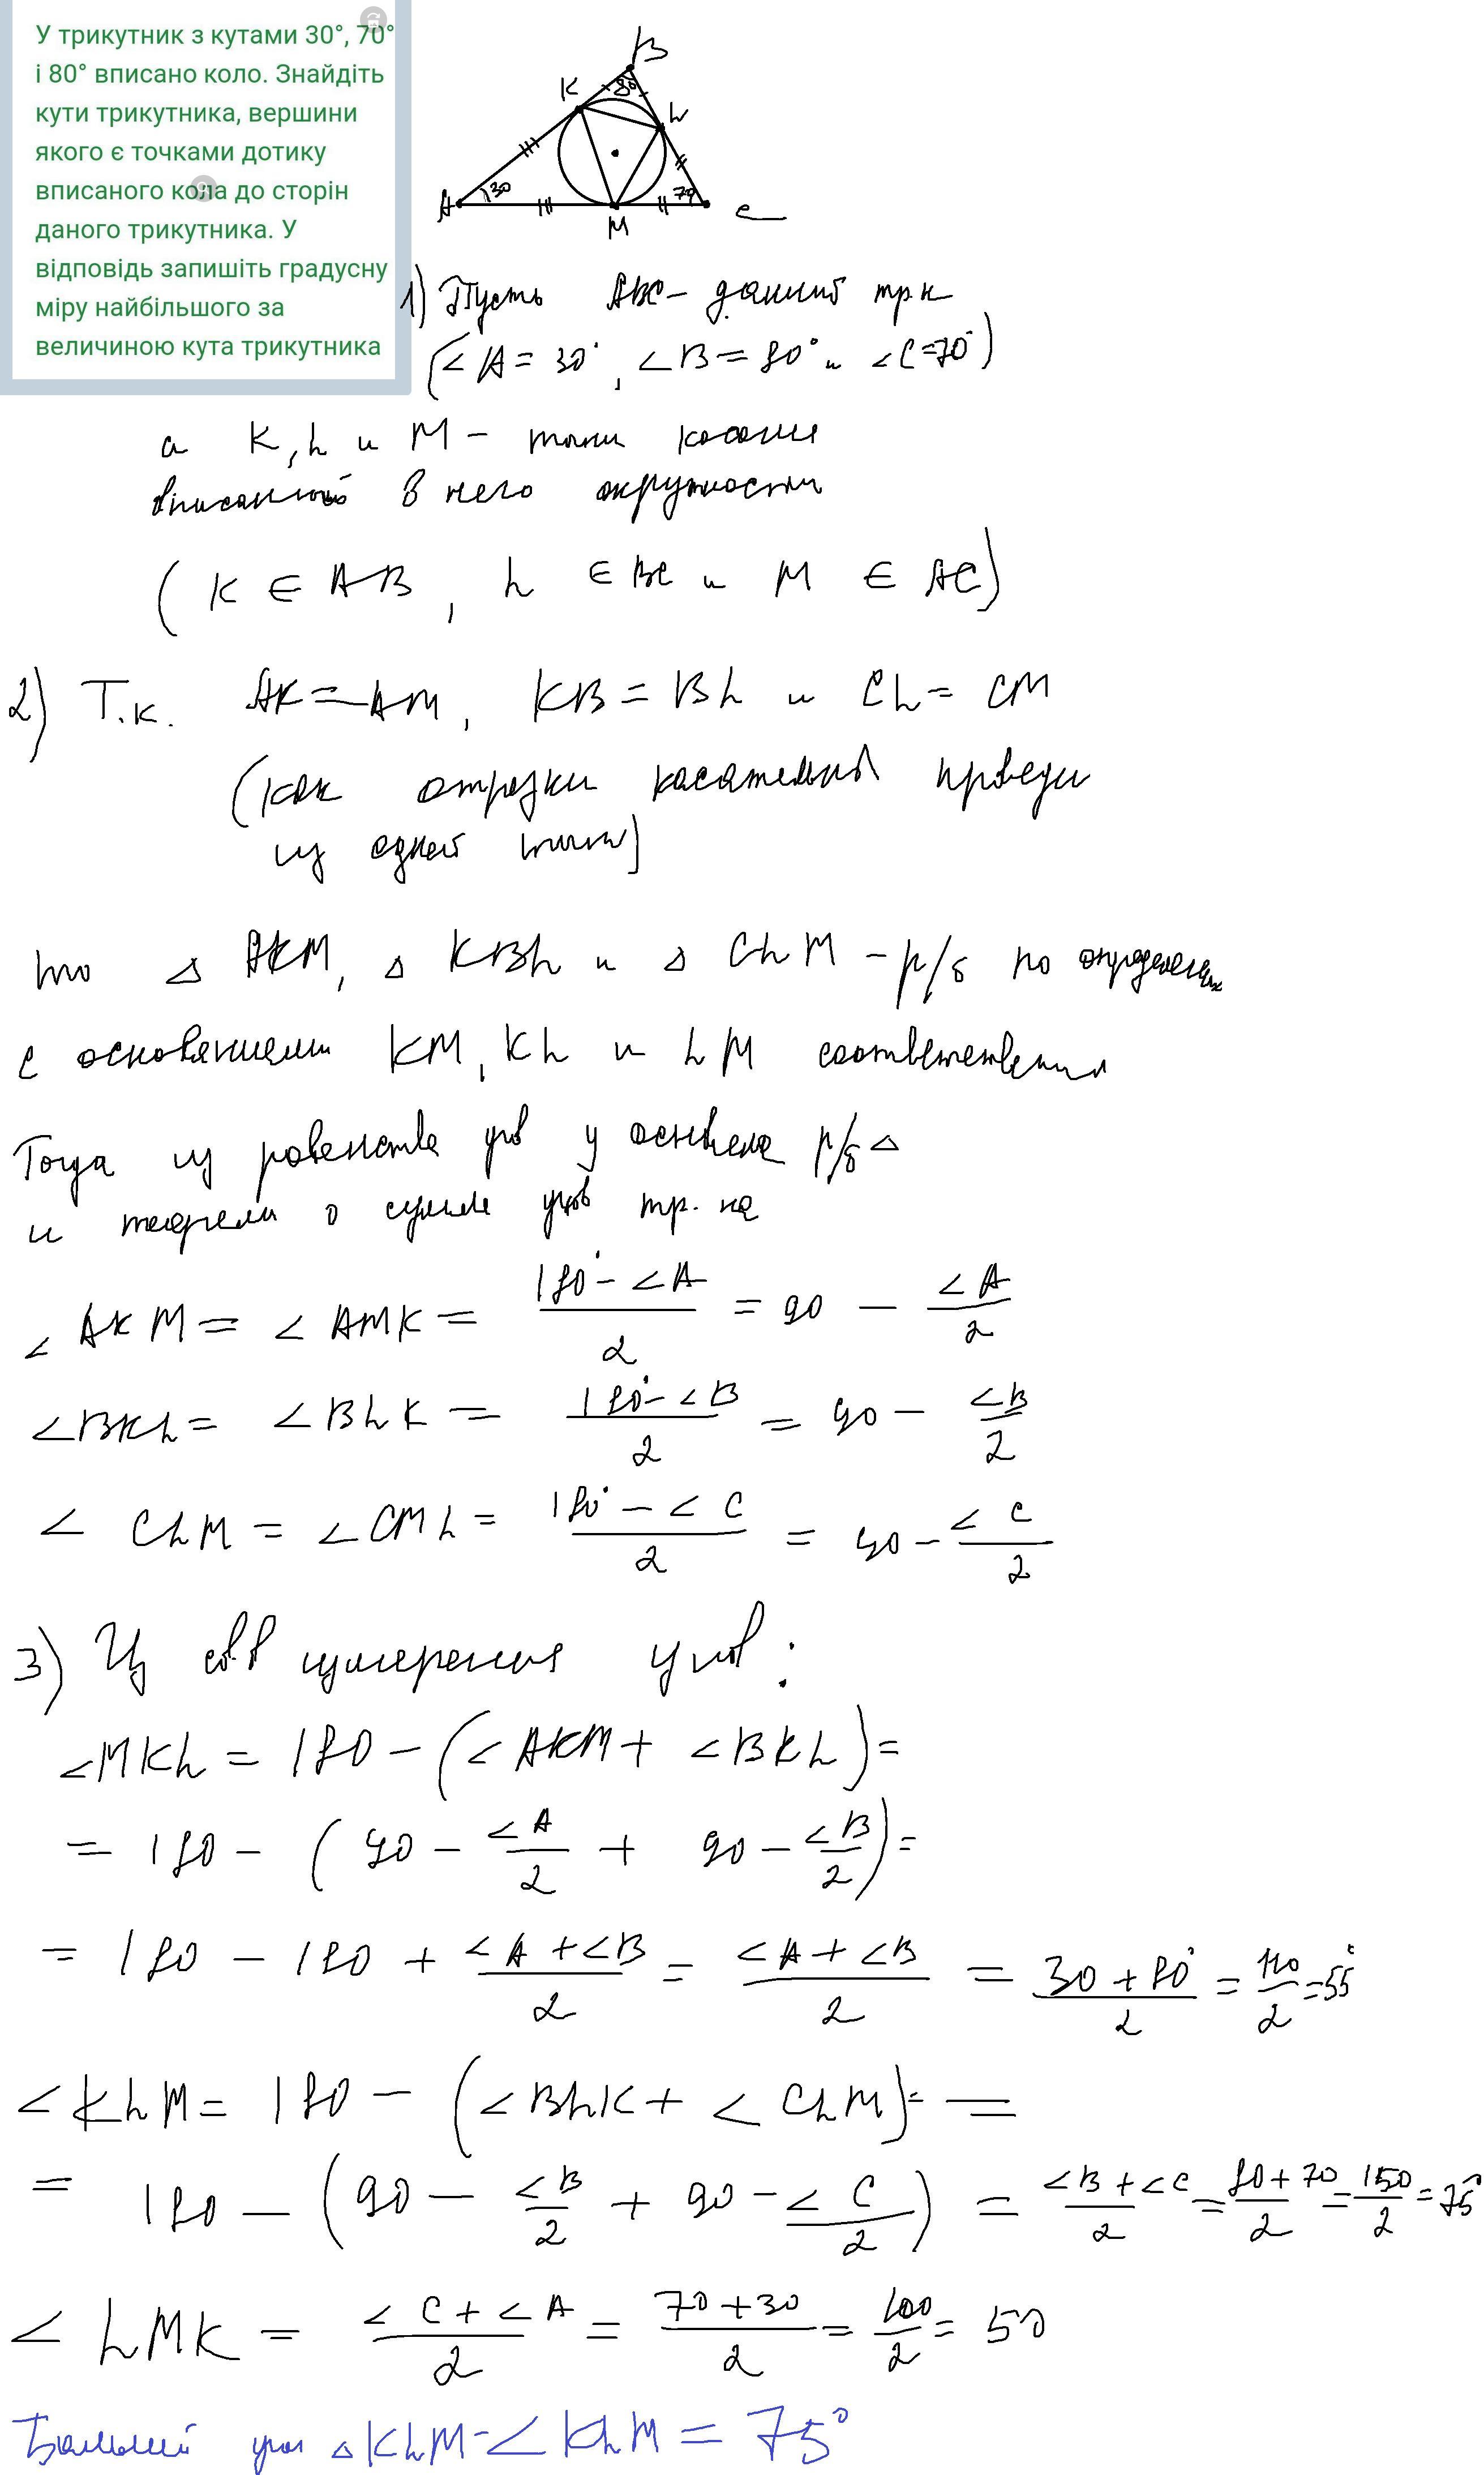 У трикутник з кутами 30°, 70°
і 80° вписано коло. Знайдіть
кути трикутника, вершини
якого є точками дотику
вписаного кола до сторін
даного трикутника. У
відповідь запишіть градусну
міру найбільшого за
величиною кута трикутника
B
K 80 L
A 30 70 C
M
1) Пусть ABC - данный тр.к
(∠A = 30°, ∠B = 80° и ∠C = 70°)
а K, L и M - точки касания
вписанной в него окружности
(K ∈ AB, L ∈ BC и M ∈ AC)
2) Т.к. AK = AM, KB = BL и CL = CM
(как отрезки касательной проведен
из одной точки)
то △ AKM, △ KBL и △ CLM - р/б по определен
с основаниями KM, KL и LM соответственно
Тогда из равенства углов у основания р/б △
и теоремы о сумме углов тр. ка
∠AKM = ∠AMK = (180° - ∠A)/2 = 90 - ∠A/2
∠BKL = ∠BLK = (180° - ∠B)/2 = 90 - ∠B/2
∠CLM = ∠CML = (180° - ∠C)/2 = 90 - ∠C/2
3) Из св.в измерения углов:
∠MKL = 180 - (∠AKM + ∠BKL) =
= 180 - (90 - ∠A/2 + 90 - ∠B/2) =
= 180 - 180 + (∠A + ∠B)/2 = (∠A + ∠B)/2 = (30 + 80°)/2 = 110/2 = 55°
∠KLM = 180 - (∠BLK + ∠CLM) = =
= 180 - (90 - ∠B/2 + 90 - ∠C/2) = (∠B + ∠C)/2 = (80 + 70)/2 = 150/2 = 75°
∠LMK = (∠C + ∠A)/2 = (70 + 30)/2 = 100/2 = 50
Больший угол △KLM - ∠KLM = 75°